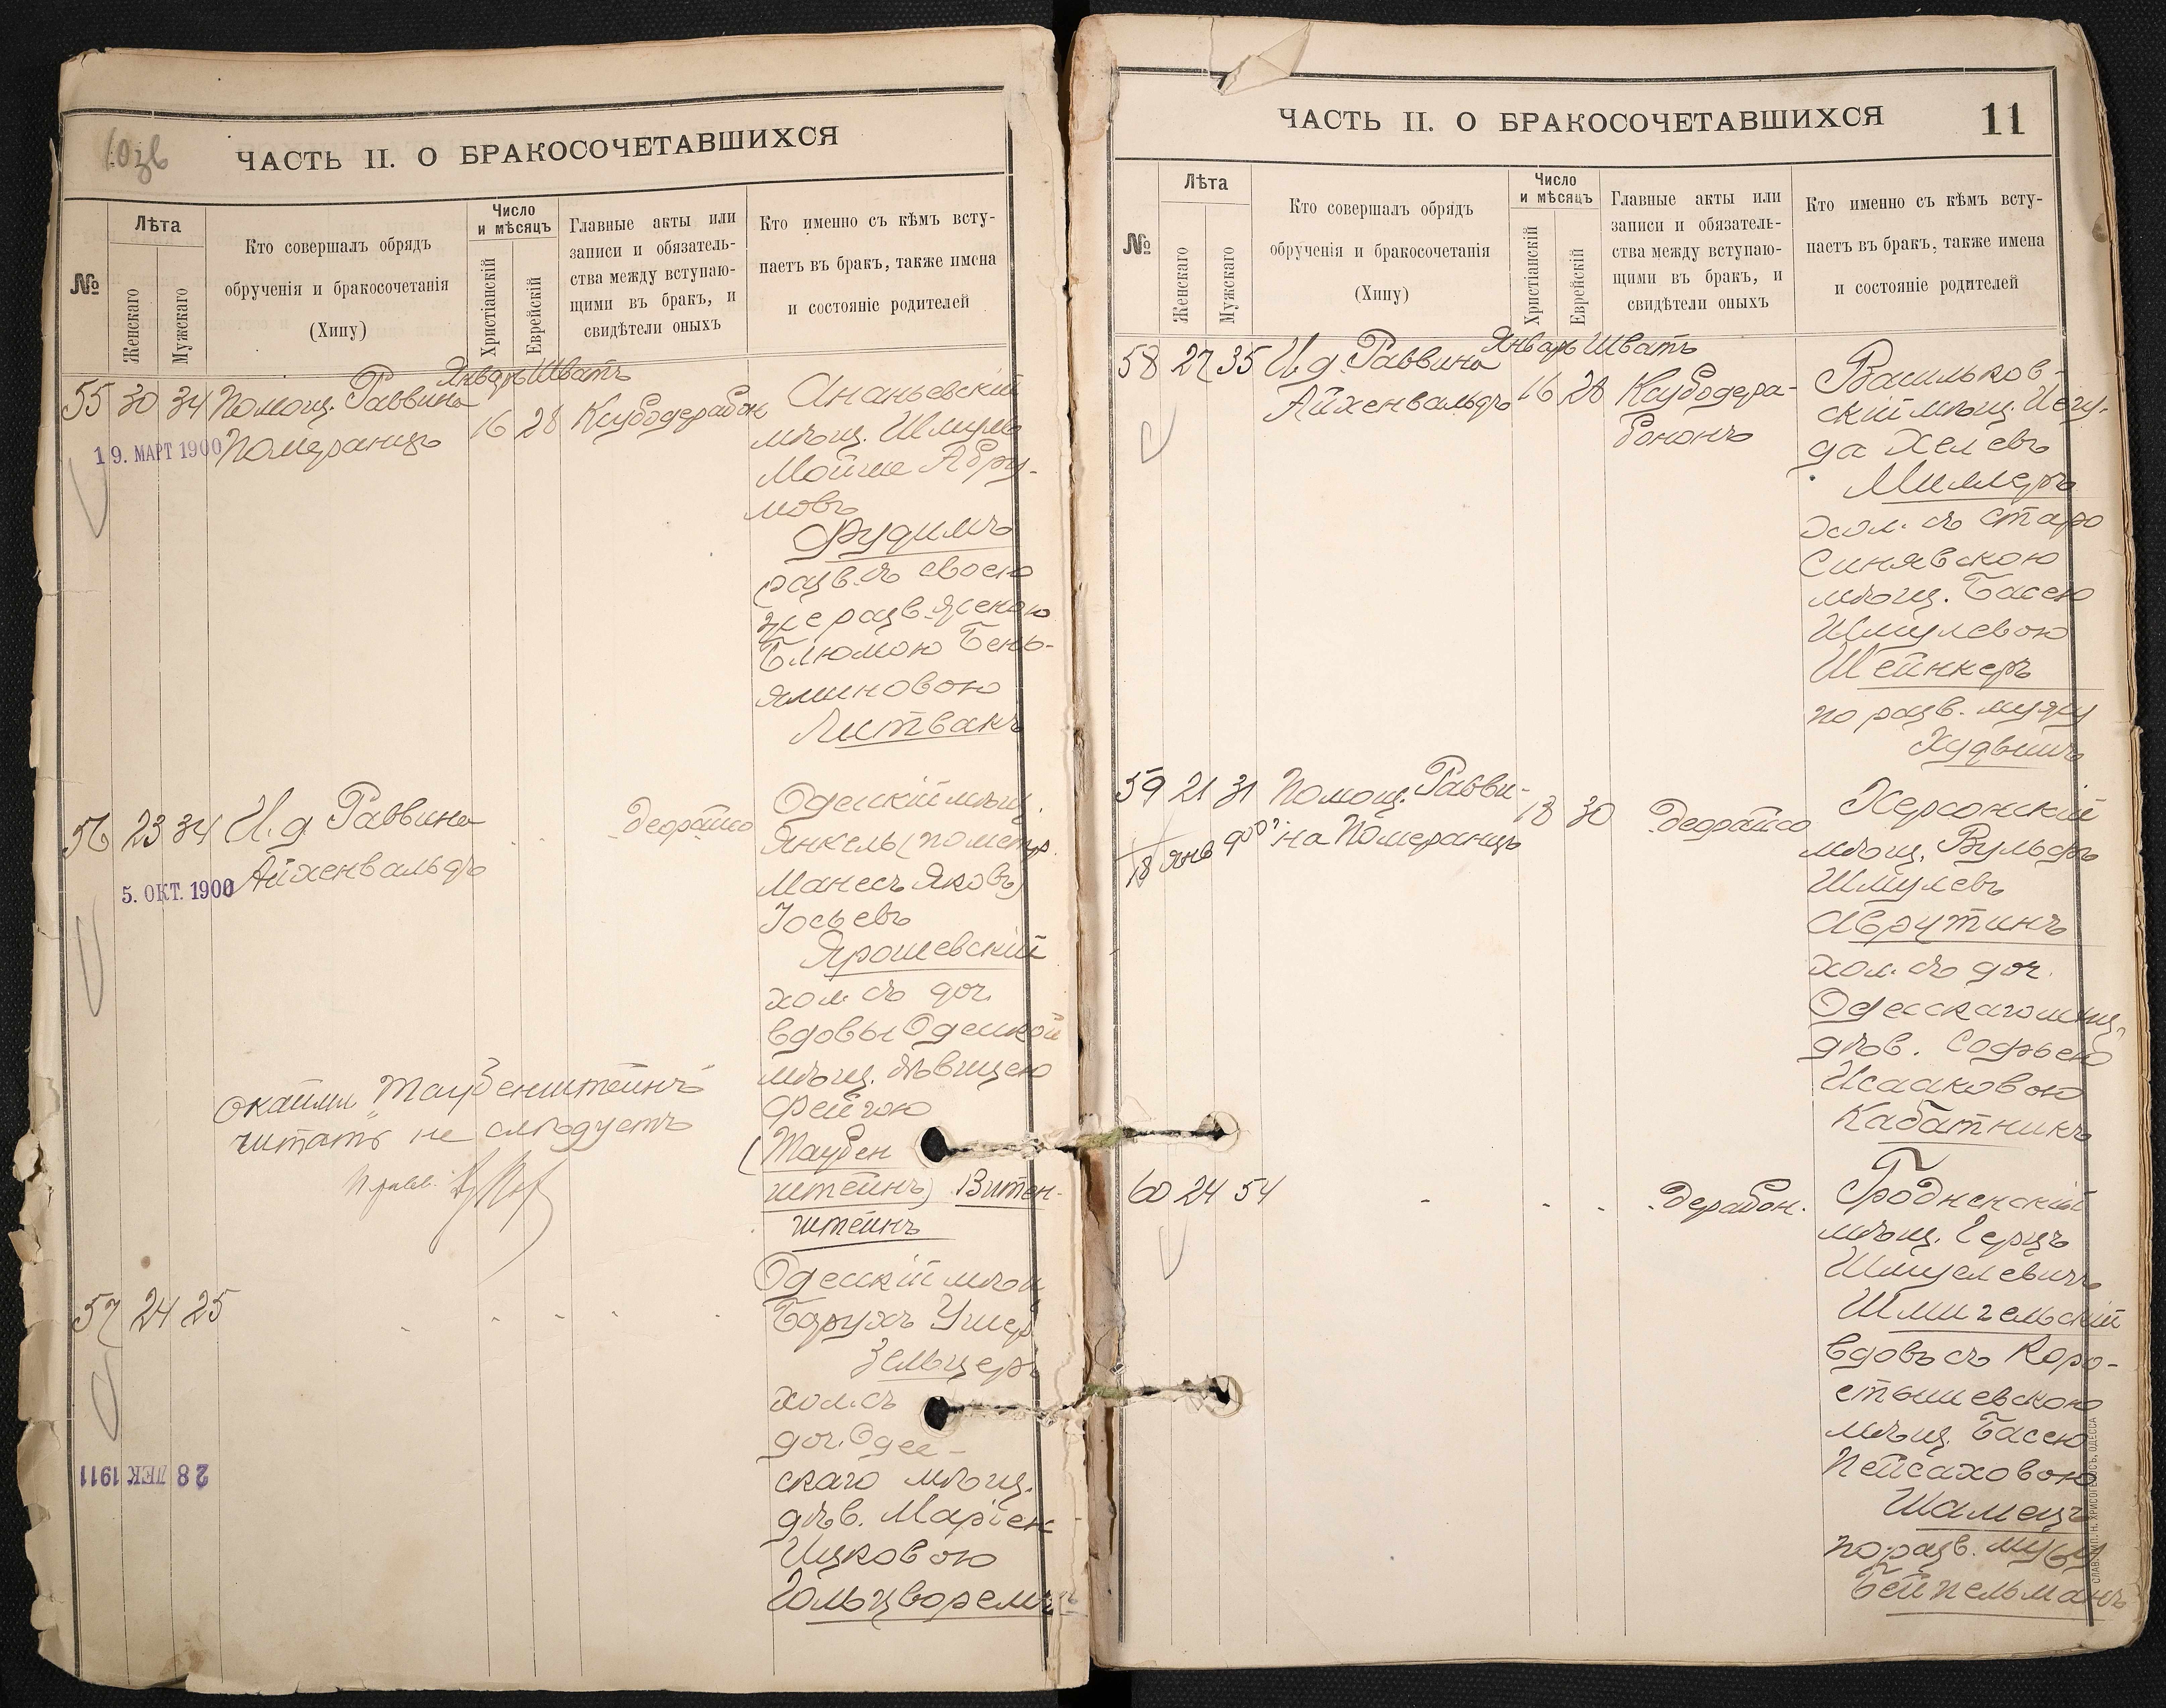 10 зв
ЧАСТЬ II. О БРАКОСОЧЕТАВШИХСЯ
№
Лѣта
Женскаго
Мужскаго
Кто совершалъ обрядъ
обрученія и бракосочетанія
(Хипу)
Число
и мѣсяцъ
Христіанскій
Еврейскій
Главные акты или
записи и обязатель-
ства между вступаю-
щими въ бракъ, и
свидѣтели оныхъ
Кто именно съ кѣмъ всту-
паетъ въ бракъ, также имена
и состояніе родителей
Январь Шватъ
55 30 34 Помощ. Раввина
Померанцъ
16 28 Ксубодерабон
19. МАРТ 1900
Ананьевскій
мѣщ. Шмуль
Мойше Абру-
мовъ
Фудимъ
разв. съ своею
же разв. женою
Блюмою Бень-
яминовою
Литвакъ
56 23 34 И. д. Раввина
Айхенвальдъ
Деорайсо
5. ОКТ. 1900
Одесскій мѣщ.
Янкель (по метр.
Манесъ Яковъ)
Іосьевъ
Ярошевскій
хол. съ доч.
вдовы Одесской
мѣщ. дѣвицею
Фейгою
(Таубен
штейнъ) Витен-
штейнъ
"Таубенштейнъ"
читать не слѣдуетъ
57 24 25
28 ДЕК 1911
Одесскій мѣщ
Борухъ Ушер
Зельцеръ
хол. съ
доч. Одес-
скаго мѣщ.
дѣв. Маріею
Ицковою
ЧАСТЬ II. О БРАКОСОЧЕТАВШИХСЯ
11
№
Лѣта
Женскаго
Мужскаго
Кто совершалъ обрядъ
обрученія и бракосочетанія
(Хипу)
Число
и мѣсяцъ
Христіанскій
Еврейскій
Главные акты или
записи и обязатель-
ства между вступаю-
щими въ бракъ, и
свидѣтели оныхъ
Кто именно съ кѣмъ всту-
паетъ въ бракъ, также имена
и состояніе родителей
Январь Шватъ
58 27 35 И. д. Раввина
Айхенвальдъ
16 28 Ксубодера-
бононъ
Васильков-
скій мѣщ. Иегу-
да Хелевъ
Миллеръ
хол. съ Старо
Синявскою
мѣщ. Басею
Шмулевою
Шейнкеръ
по разв. мужу
59 21 31 Помощ. Равви-
на Померанцъ
18 30 Деорайсо
18 янв 900 г.
Херсонскій
мѣщ. Вульфъ
Шмулевъ
Аврутинъ
хол. съ доч.
Одесскаго мѣщ.
дѣв. Софьею
Исааковою
Кабатникъ
60 24 54
Дерабон.
Гродненскій
мѣщ. Герцъ
Шмуелевичъ
Шмигельскій
вдовъ съ Коро-
стышевскою
мѣщ. Басею
Пейсаховою
Шамецъ
по разв. мужу
Бейпельманъ
СЛАВ. ТИП. Н. ХРИСОГЕЛОСЪ, ОДЕССА